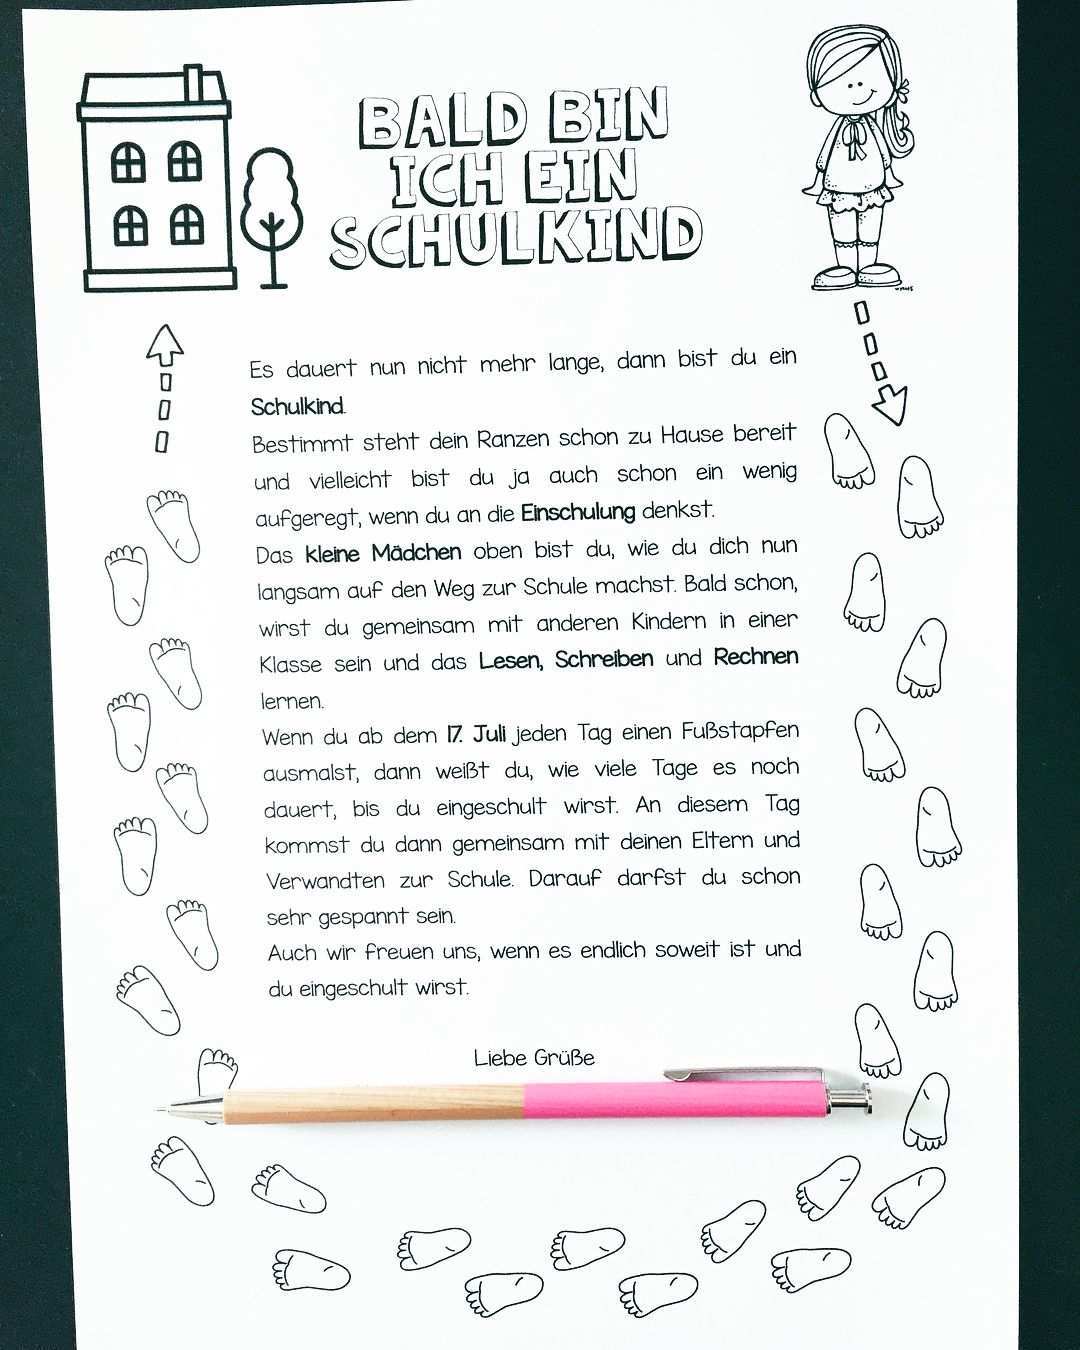 BALD BIN
ICH EIN
SCHULKIND
Es dauert nun nicht mehr lange, dann bist du ein
Schulkind.
Bestimmt steht dein Ranzen schon zu Hause bereit
und vielleicht bist du ja auch schon ein wenig
aufgeregt, wenn du an die Einschulung denkst.
Das kleine Mädchen oben bist du, wie du dich nun
langsam auf den Weg zur Schule machst. Bald schon,
wirst du gemeinsam mit anderen Kindern in einer
Klasse sein und das Lesen, Schreiben und Rechnen
lernen.
Wenn du ab dem 17. Juli jeden Tag einen Fußstapfen
ausmalst, dann weißt du, wie viele Tage es noch
dauert, bis du eingeschult wirst. An diesem Tag
kommst du dann gemeinsam mit deinen Eltern und
Verwandten zur Schule. Darauf darfst du schon
sehr gespannt sein.
Auch wir freuen uns, wenn es endlich soweit ist und
du eingeschult wirst.
Liebe Grüße